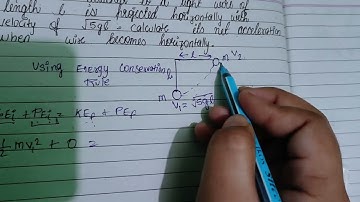 to a light wire of
length l is projected horizontally with
velocity of √5gl - calculate its net acceleration
when wire becomes horizontally.
Using Energy conservation
rule
← l →
m V₂
l
m
V₁ = √5gl
KEi + PEi = KEf + PEf
½ mv₁² + 0 =